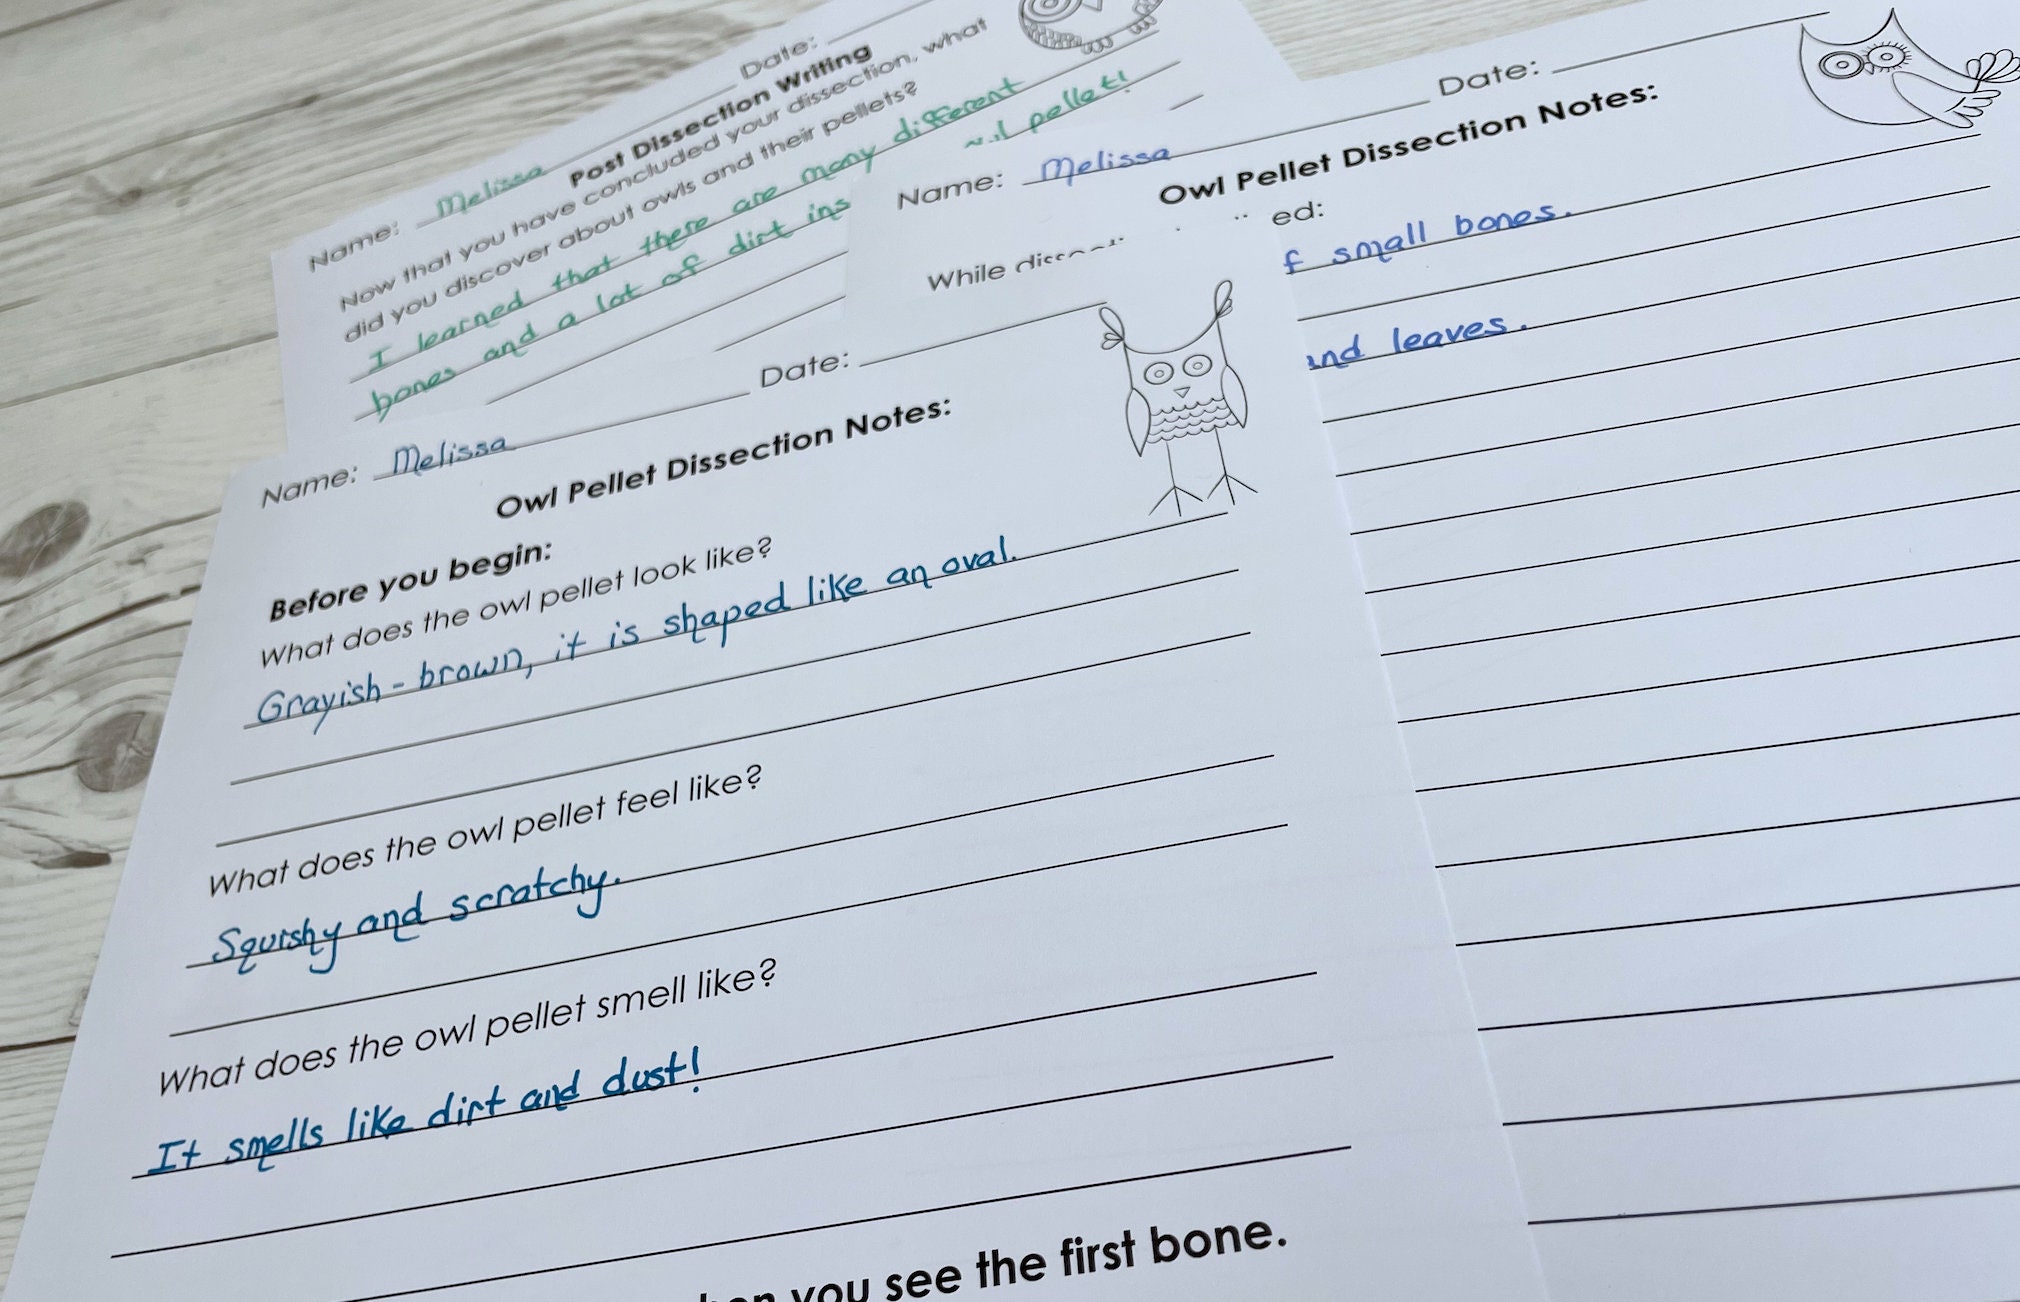 Name: Melissa Date:
Post Dissection Writing
Now that you have concluded your dissection, what
did you discover about owls and their pellets?
I learned that there are many different
bones and a lot of dirt pellet!
Name: Melissa Date:
Owl Pellet Dissection Notes:
While ed:
small bones.
and leaves.
Name: Melissa Date:
Owl Pellet Dissection Notes:
Before you begin:
What does the owl pellet look like?
Grayish-brown, it is shaped like an oval.
What does the owl pellet feel like?
Squishy and scratchy.
What does the owl pellet smell like?
It smells like dirt and dust!
you see the first bone.